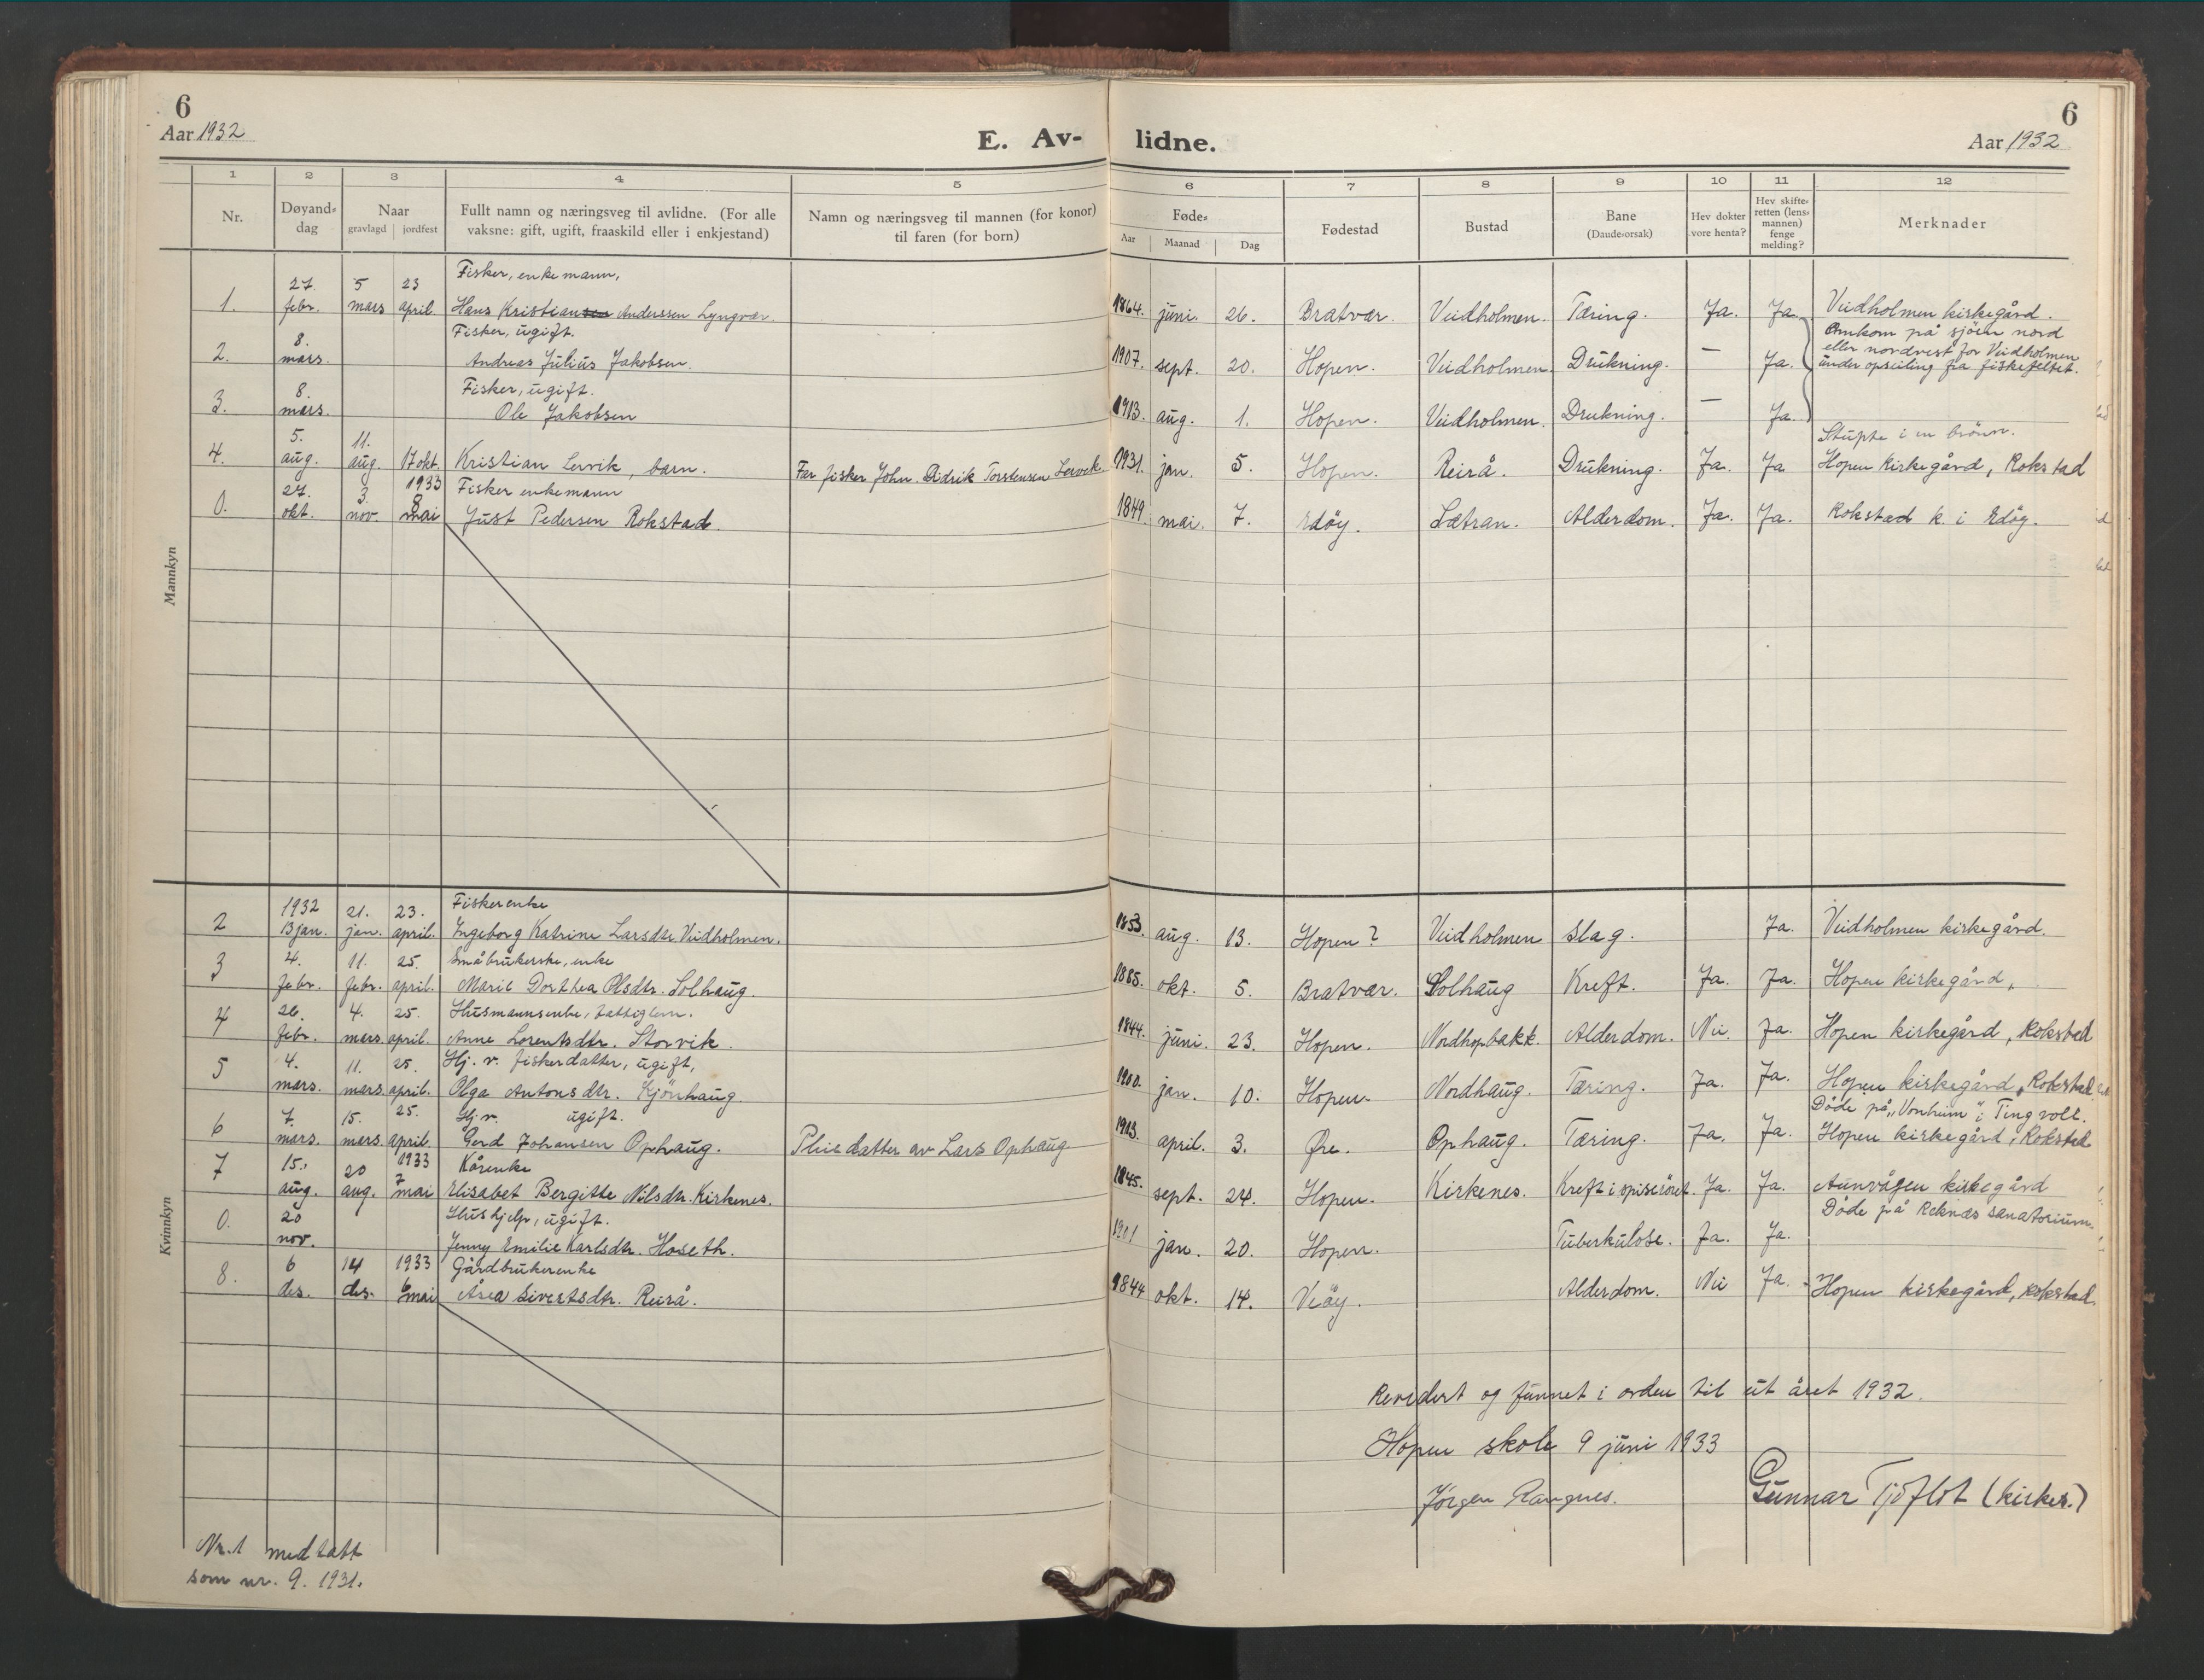 6
Aar 1932
E. Av-
lidne.
6
Aar 1932
1 2 3 4 5 6 7 8 9 10 11 12
Nr.
Døyand-
dag
Naar
gravlagd jordfest
Fullt namn og næringsveg til avlidne. (For alle
vaksne: gift, ugift, fraaskild eller i enkjestand)
Namn og næringsveg til mannen (for konor)
til faren (for born)
Føde-
Aar Maanad Dag
Fødestad
Bustad
Bane
(Daude-orsak)
Hev dokter
vore henta?
Hev skifte-
retten (lens-
mannen)
fenge
melding?
Merknader
Mannkyn
27. 5 23 Fisker, enkemann,
1. febr. mars april Hans Kristian Anderssen Lyngvær. 1864. juni. 26. Bratvær. Veidholmen. Tæring. Ja. Ja. Veidholmen kirkegård.
8. Fisker, ugift. Omkom på sjöen nord
eller nordvest for Veidholmen
2. mars. Andreas Julius Jakobsen. 1907. sept. 20. Hopen. Veidholmen. Drukning. — Ja. under opseiling fra fiskefeltet.
8. Fisker, ugift.
3. mars. Ole Jakobsen 1913. aug. 1. Hopen. Veidholmen. Drukning. — Ja.
5. 11. Stupte i en brönn.
4. aug. aug. 17 okt. Kristian Lervik, barn. Far fisker John Didrik Torstensen Lervik 1931. jan. 5. Hopen. Reirå. Drukning. Ja. Ja Hopen kirkegård, Rokstad
27. 3. 1933 Fisker enkemann
0. okt. nov. 8 mai Just Pedersen Rokstad. 1849. mai. 7. Edöy. Lætran. Alderdom. Ja. Ja. Rokstad k. i Edöy.
Kvinnkyn
1932 21. 23. Fiskerenke
2 13 jan. jan. april. Ingeborg Katrine Larsdtr. Veidholmen. 1853. aug. 13. Hopen? Veidholmen Slag. Ja. Veidholmen kirkegård.
4. 11. 25. Småbrukerske, enke
3 febr. febr. april. Marie Dorthea Olsdtr. Solhaug. 1885. okt. 5. Bratvær. Solhaug Kreft. Ja. Ja. Hopen kirkegård,
26. 4. 25. Husmannsenke, fattiglem.
4 febr. mars. april. Anne Lorentsdtr. Storvik. 1844. juni. 23. Hopen. Nordhopbakk. Alderdom. Nei. Ja. Hopen kirkegård, Rokstad
4. 11. 25. Hj. v. fiskerdatter, ugift,
5 mars. mars. april. Olga Antonsdtr. Kjönhaug. 1900. jan. 10. Hopen. Nordhaug. Tæring. Ja. Ja. Hopen kirkegård, Rokstad
7. 15. 25. Hj. v. ugift. Döde på "Vonheim" i Tingvoll.
6 mars. mars. april. Gerd Johansen Ophaug. Pleiedatter av Lars Ophaug 1913. april. 3. Øre. Ophaug. Tæring. Ja. Ja. Hopen kirkegård, Rokstad
15. 20 1933 Kårenke
7 aug. aug. 7 mai Elisabet Bergitte Nilsdtr. Kirkenes. 1845. sept. 24. Hopen. Kirkenes. Kreft i spiseröret. Ja. Ja. Aunvågen kirkegård
20 Hushjelp, ugift. Döde på Reknæs sanatorium.
0. nov. Jenny Emilie Karlsdtr. Hoseth. 1901 jan. 20. Hopen. Tuberkulose. Ja. Ja.
6 14 1933 Gårdbrukerenke
8. des. des. 6 mai Åsea Sivertsdtr. Reirå. 1844 okt. 14. Veöy. Alderdom. Nei Ja. Hopen kirkegård, Rokstad.
Revidert og funnet i orden til ut året 1932.
Hopen skole 9 juni 1933
Jörgen Rangnes. Gunnar Tjöflot (kirkes.)
Nr. 1 medtatt
som nr. 9. 1931.